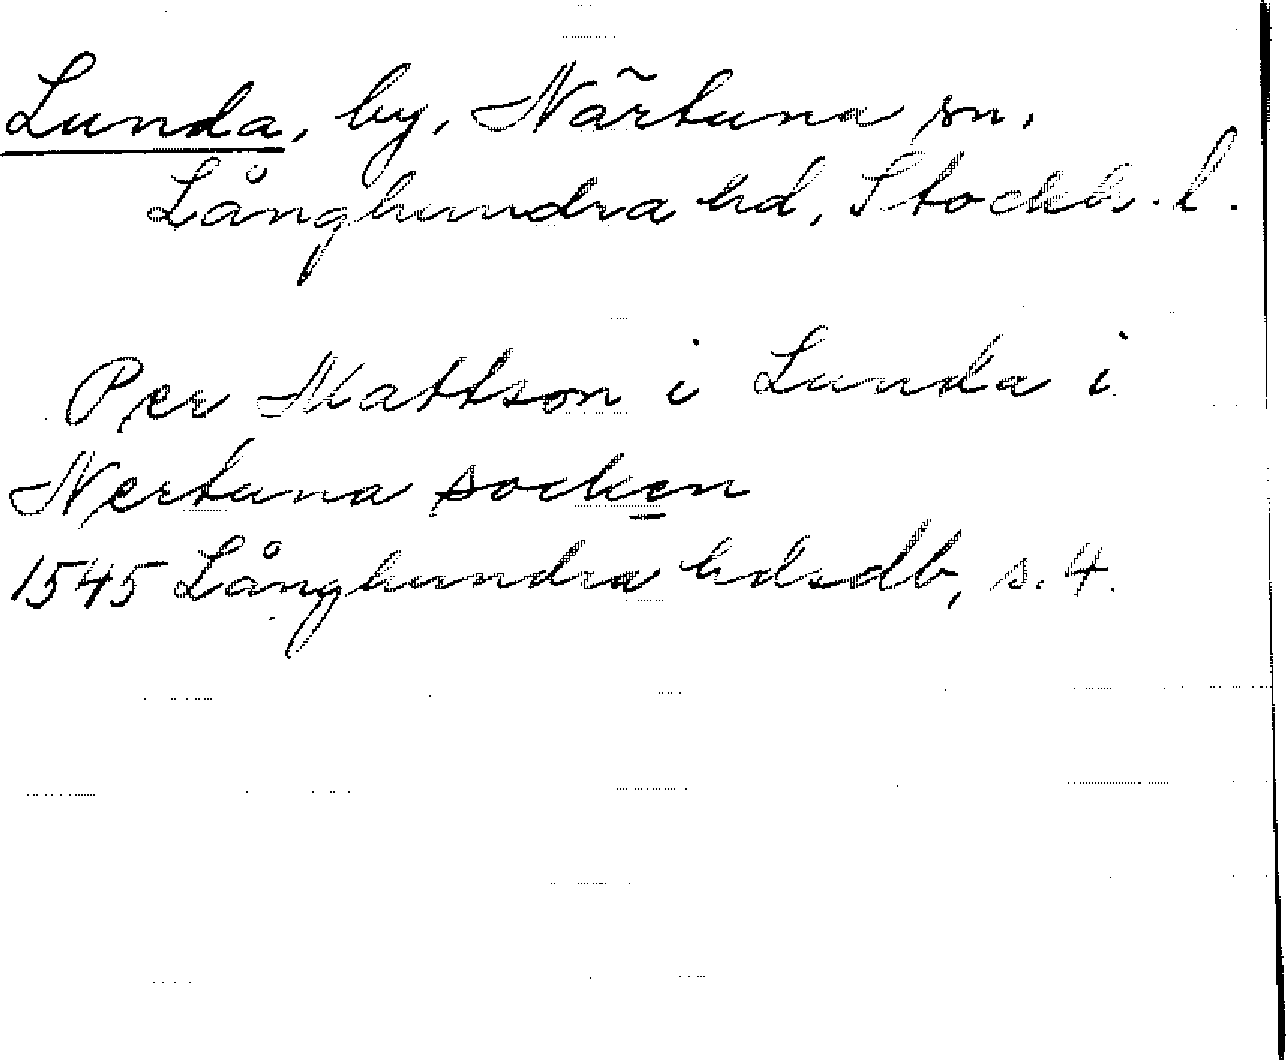 Lunda, by, Närtuna sn.
Långhundra hd, Stockh. l.
Per Mattson i Lunda i
Nertuna socken
1545 Långhundra hdsdb, s. 4.